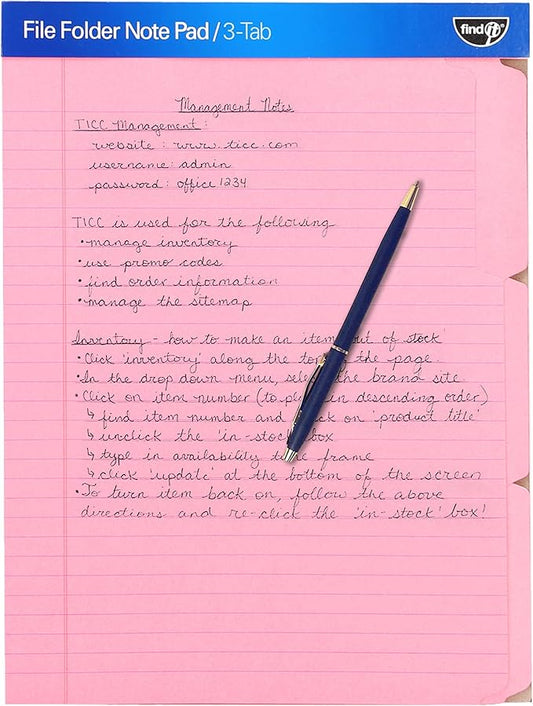 File Folder Note Pad / 3-Tab
find it®
Management Notes
TICC Management:
website : www.ticc.com
username: admin
password: office1234
TICC is used for the following
• manage inventory
• use promo codes
• find order information
• manage the sitemap
Inventory - how to make an item out of stock
• Click 'inventory' along the top the page.
• In the drop down menu, the brand site.
• Click on item number (to in descending order)
↳ find item number and on 'product title'
↳ unclick the 'in-stock' box
↳ type in availability time frame
↳ click 'update' at the bottom of the screen
• To turn item back on, follow the above
directions and re-click the 'in-stock' box!